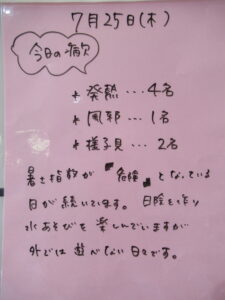 7月25日(木)
今日の病欠
* 発熱…4名
* 風邪…1名
* 様子見…2名
暑さ指数が "危険" となっている
日が続いています。日陰を作り
水あそびを楽しんでいますが
外では遊べない日々です。